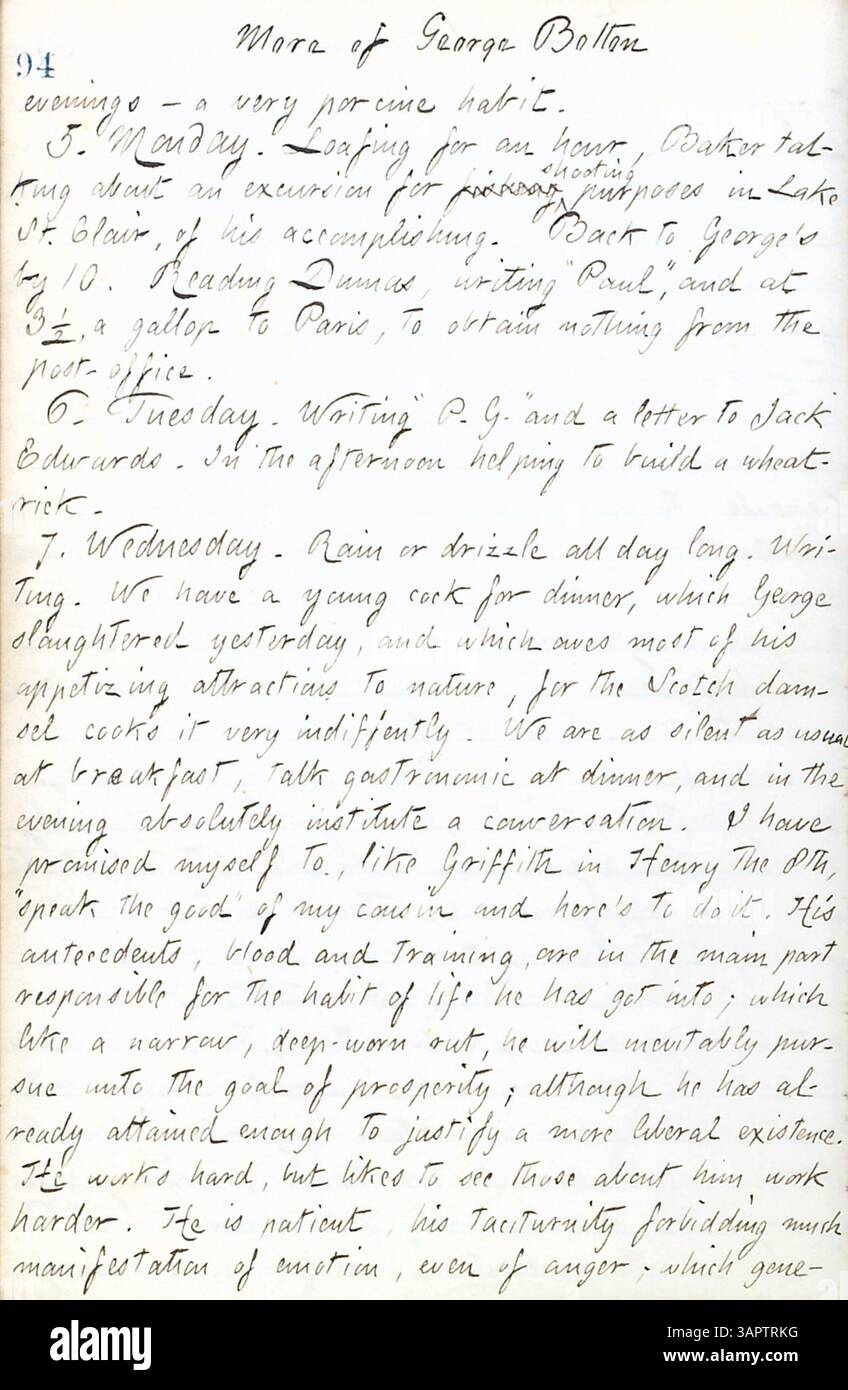 More of George Bolton
94
evenings – a very porcine habit.
5. Monday. Loafing for an hour, Baker tal-
king about an excursion for fishing shooting purposes in Lake
St. Clair, of his accomplishing. Back to George's
by 10. Reading Dumas, writing "Paul", and at
3½, a gallop to Paris, to obtain nothing from the
post-office.
6. Tuesday. Writing "P. G." and a letter to Jack
Edwards. In the afternoon helping to build a wheat-
rick.
7. Wednesday. Rain or drizzle all day long. Wri-
ting. We have a young cock for dinner, which George
slaughtered yesterday, and which owes most of his
appetizing attractions to nature, for the Scotch dam-
sel cooks it very indiffently. We are as silent as usual
at breakfast, talk gastronomic at dinner, and in the
evening absolutely institute a conversation. I have
promised myself to, like Griffith in Henry the 8th,
"speak the good" of my cousin and here's to do it. His
antecedents, blood and training, are in the main part
responsible for the habit of life he has got into; which
like a narrow, deep-worn rut, he will inevitably pur-
sue unto the goal of prosperity; although he has al-
ready attained enough to justify a more liberal existence.
He works hard, but likes to see those about him work
harder. He is patient, his taciturnity forbidding much
manifestation of emotion, even of anger; which gene-
alamy
Image ID: 3APTRKG
www.alamy.com